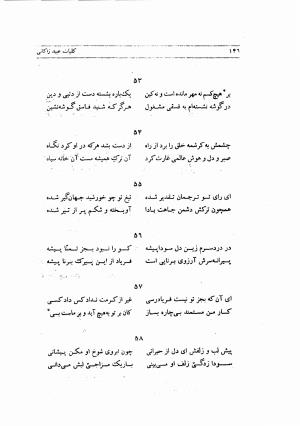 ۱۴۶ کلیات عبید زاکانی
۵۳
بر* هیچکسم نه مهر مانده است و نه کین یکباره بشسته دست از دنیی و دین
در گوشه نشسته‌ام به فسقی مشغول هرگز که شنید فاسق گوشه‌نشین
۵۴
چشمش به کرشمه خلق را برد از راه از دست بشد هر که در او کرد نگاه
صبر و دل و هوش عالمی غارت کرد آن ترک همیشه مست آن خانه سیاه
۵۵
ای رای تو ترجمان تقدیر شده تیغ تو چو خورشید جهان‌گیر شده
همچون ترکش دشمن جاهت بادا آویخته و شکم پر از تیر شده
۵۶
در دردسرم زین دل سوداپیشه کو را نبود بجز تمنا پیشه
پیرانه‌سرش آرزوی برنایی است فریاد از این پیرک برنا پیشه
۵۷
ای آن که بجز تو نیست فریادرسی غیر از کرمت نداد کس داد کسی
کار من مستمند بی‌چاره بساز کان بر تو به هیچ آید و بر ماست بسی*
۵۸
پیش لب و زلفش ای دل از حیرانی چون ابروی شوخ او مکن پیشانی
سودازدگی زلف او می‌بینی باریک مزاجی لبش می‌دانی